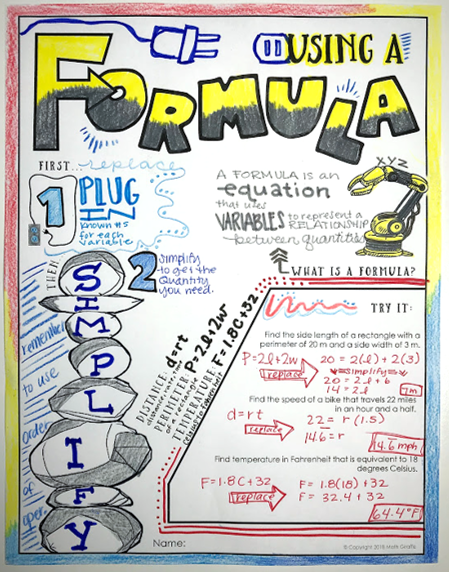 USING A
FORMULA
FIRST... replace
1 PLUG
IN
known #s
for each
variable
A FORMULA IS AN
equation
that uses
VARIABLES to represent a
RELATIONSHIP
between quantities
XYZ
WHAT IS A FORMULA?
THEN
SIMPLIFY
2 simplify
to get the
Quantity
you need.
remember
to use
order
of
oper.
DISTANCE: d=rt
distance, rate, time
PERIMETER P=2l+2w
of a rectangle
TEMPERATURE F=1.8C+32
celsius to fahrenheit
TRY IT:
Find the side length of a rectangle with a
perimeter of 20 m and a side width of 3 m.
P=2l+2w 20 = 2(l) + 2(3)
replace simplify
20 = 2l + 6
14 = 2l 7m
Find the speed of a bike that travels 22 miles
in an hour and a half.
d=rt 22 = r (1.5)
replace
14.6 = r 14.6 mph
Find temperature in Fahrenheit that is equivalent to 18
degrees Celsius.
F=1.8C+32 F= 1.8(18) +32
replace F= 32.4 + 32
64.4°F
Name:
© Copyright 2018 Math Giraffe